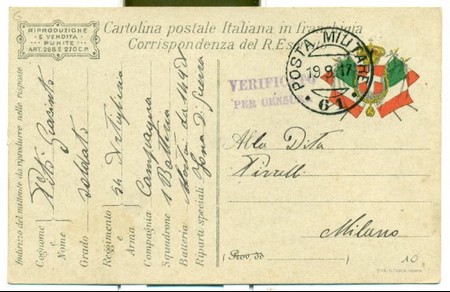 RIPRODUZIONE
E VENDITA
PUNITE
ART. 266 E 270 C.P.
Cartolina postale Italiana in franchigia
Corrispondenza del R. Es
POSTA MILITARE
19.9.17
61
VERIFICATO
PER CENSURA
Indirizzo del mittente da riprodurre nelle risposte
Cognome e Nome
Giacinto
Grado soldato
Reggimento e Arma
Compagnia Campagna
Squadrone 1 Batteria
Batteria da 149
Riparti speciali Zona di guerra
Alla Dita
Pirelli
Milano
(Prov. di
10